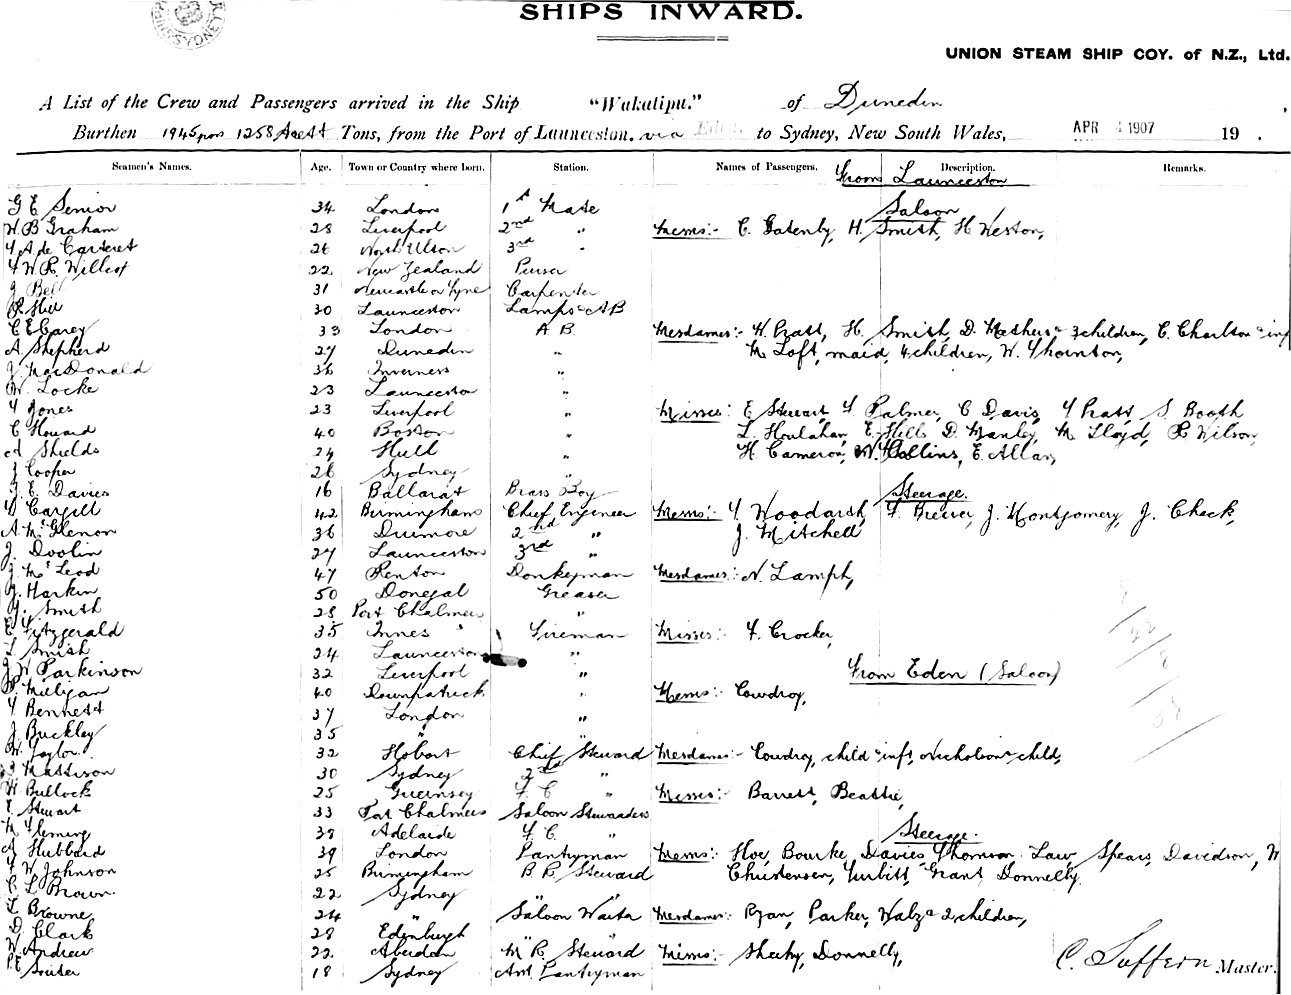 SHIPS INWARD.
UNION STEAM SHIP COY. of N.Z., Ltd.
A List of the Crew and Passengers arrived in the Ship "Wakatipu." of Dunedin
Burthen 1945 1258 Tons, from the Port of Launceston. via Eden. to Sydney, New South Wales, APR 1907 19 .
Seamen's Names. Age. Town or Country where born. Station. Names of Passengers. Description. Remarks.
From Launceston
G E Senior 34 London 1st Mate Saloon
W B Graham 28 Liverpool 2nd " Messrs:- C. Gatenby, H. Smith, H Weston,
de Carteret 26 North 3rd "
W R. 22 New Zealand Purser
J Bell 31 Newcastle on Tyne Carpenter
R Hill 30 Launceston Lamps & AB
C E Carey 33 London A B Mesdames:- H. Pratt, H. Smith, D. 3 children, E. Charlton & inf
A Shepherd 27 Dunedin " M. Toft, maid, 4 children, W. Thornton,
J. MacDonald 36 Inverness "
W. Locke 23 Launceston "
T Jones 23 Liverpool " Misses: E Stewart, F. Palmer, C Davis, Pratt, S. Booth
C Howard 40 Boston " L. Houlahan, E. Hills D. Manley, M. Lloyd, R Wilson,
A Shields 24 Hull " H. Cameron, W. Collins, E. Allan,
J Cooper 26 Sydney "
J. E. Davies 16 Ballarat Brass Boy Steerage.
Cargill 42 Birmingham Chief Engineer Messrs:- F. Brewer, J. Montgomery, J. Check,
A McGlenon 36 Dunmore 2nd " J. Mitchell
J. Doolin 27 Launceston 3rd "
J. McLeod 47 Renton Donkeyman Mesdames:- N. Lamph,
Harkin 50 Donegal Greaser
Smith 28 Port Chalmers "
E Fitzgerald 35 Innes Fireman Misses:- F. Crocker,
L Smith 24 Launceston "
J W Parkinson 32 Liverpool " From Eden (Saloon)
P. Mulgan 40 Downpatrick " Messrs:- Cowdroy,
Bennett 37 London "
J. Buckley 35 "
W. Taylor. 32 Hobart Chief Steward Mesdames:- Cowdroy, child & inft, Nicholson & child,
Mattison 30 Sydney 2nd "
H Bullock 25 Guernsey F. C " Misses:- Barrett, Beattie,
E Stewart 33 Port Chalmers Saloon Stewardess
M Fleming 38 Adelaide F. C. " Steerage.
A Hubbard 39 London Pantryman Messrs:- Hoe, Bourke, Davies, Thomson. Law, Spears, Davidson,
F W Johnson 25 Birmingham B. R. Steward Christensen, Turbitt, Grant, Donnelly.
C L Brown. 22 Sydney "
L Browne, 24 " Saloon Waiter Mesdames:- Ryan, Parker, Walz & 2 children,
D. Clark 28 Edinburgh "
W Andrew 22 Aberdeen M. R. Steward Misses:- Sheehy, Donnelly,
18 Sydney Asst. Pantryman C. Suffern Master.